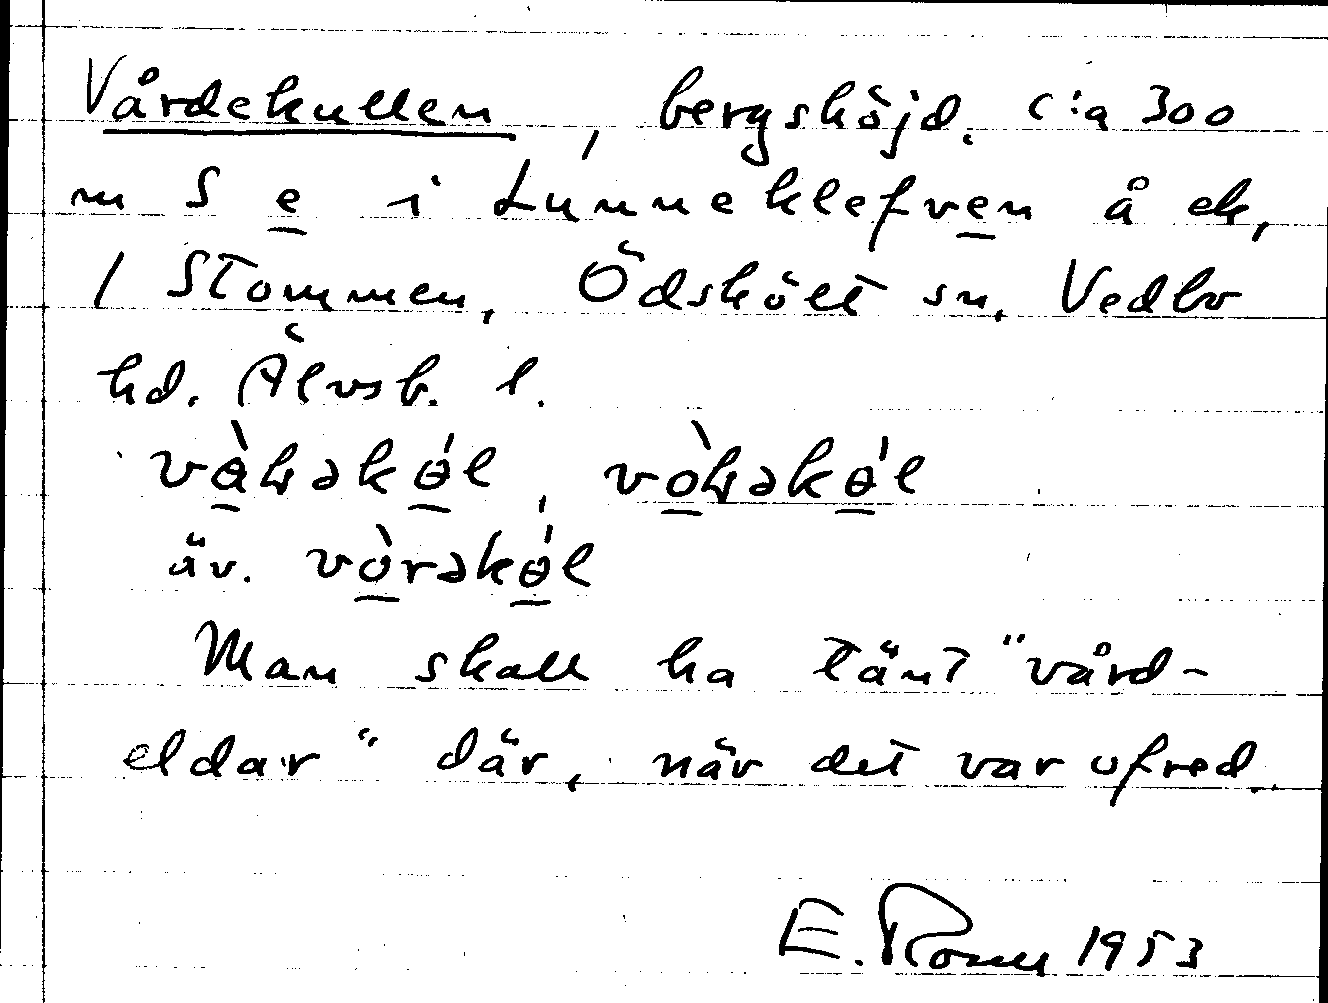 Vårdekullen, bergshöjd. c:a 300
m S e i Lunneklefven å ek,
1 Stommen, Ödskölt sn. Vedbo
hd. Älvsb. l.
äv. vòrəkɵ́l
Man skall ha tänt "vård-
eldar" där, när det var ofred.
E. Rosell 1953